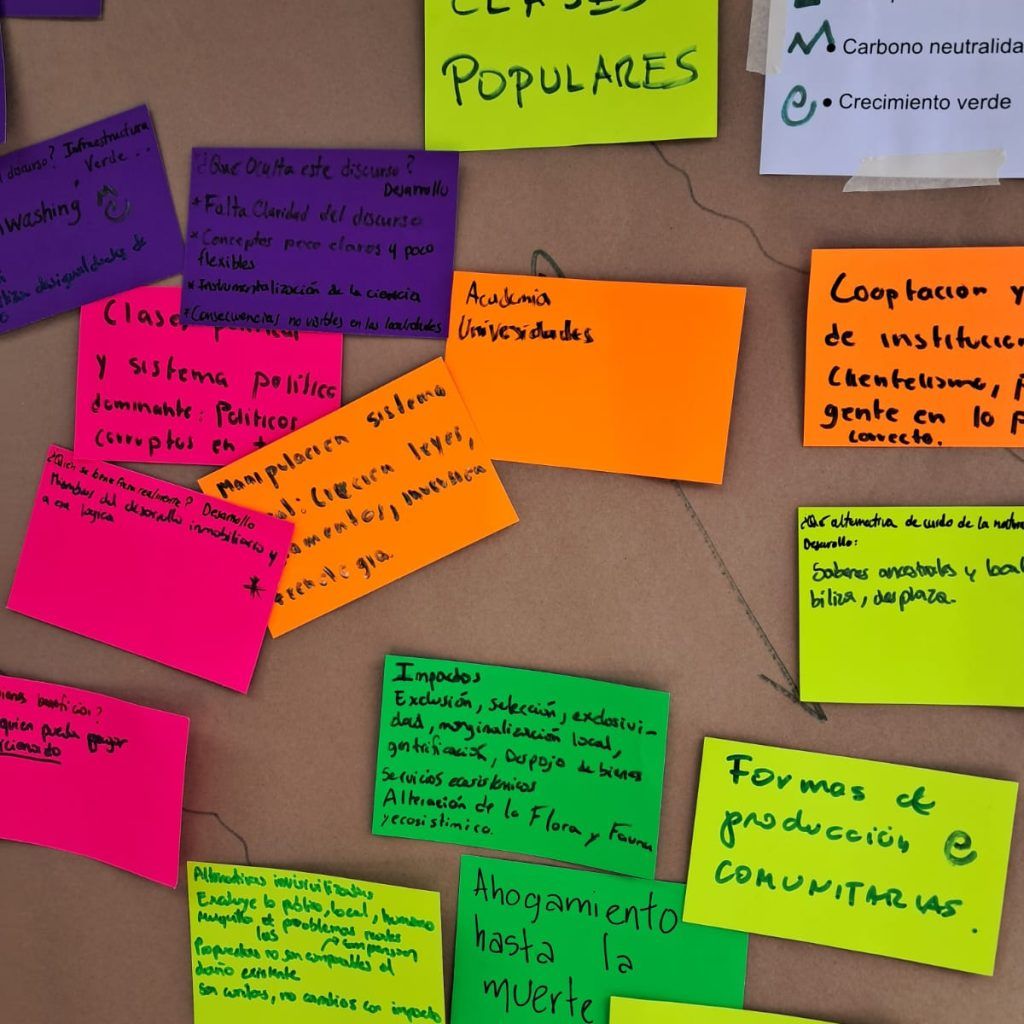 CLASES
POPULARES
Carbono neutralida
Crecimiento verde
discurso? Infraestructura
Verde..
washing
desigualdades de
¿Que Oculta este discurso?
Desarrollo
*Falta Claridad del discurso
*Conceptos poco claros y poco
flexibles
*Instrumentalización de la ciencia
*Consecuencias no visibles en las localidades
Clase
y sistema politico
dominante: Politicos
corruptos en
Academia
Universidades
Cooptacion y
de institucion
Clientelismo, p
gente en lo p
correcto.
Manipulacion sistema
al: Crecion leyes,
amentos, inversion
¿Quien se beneficia realmente? Desarrollo
Miembros del desarrollo inmobiliario y
a esa logica
*
¿Qué alternativa de cuido de la natura
Desarrollo:
Saberes ancestrales y local
biliza, desplaza.
beneficios?
quien pueda pagar
Impactos
Exclusión, selección, exclusivi-
dad, marginalización local,
gentrificación, Despojo de bienes
Servicios ecosistémicos
Alteración de la Flora y Fauna
y ecosistimico.
Formas de
producción e
COMUNITARIAS.
Alternativas invisivilizadas
Excluye lo público, local, humano
maquilla de problemas reales
las compensan
Propuestas no son comparables al
daño existente
Son curitas, no cambios con impacto
Ahogamiento
hasta la
muerte